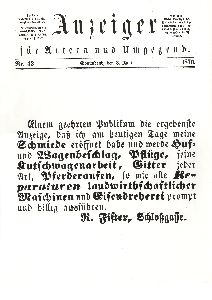 Anzeiger
für Autern und Umgegend.
Nr. 43
Sonnabend, den 1870.
Einem geehrten Publikum die ergebenste
Anzeige, daß ich am heutigen Tage meine
Schmiede eröffnet habe und werde Huf-
und Wagenbeschlag, Pflüge, feine
Kutschwagenarbeit, Gitter jeder
Art, Pferderaufen, so wie alle Re-
peraturen landwirthschaftlicher
Maschinen und Eisendreherei prompt
und billig ausführen.
R. Fister, Schloßgasse.